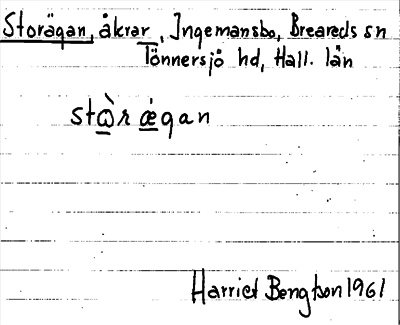 Storägan, åkrar, Ingemansbo, Breareds sn
Tönnersjö hd, Hall. län
stὼr ǽgan
Harriet Bengtson 1961